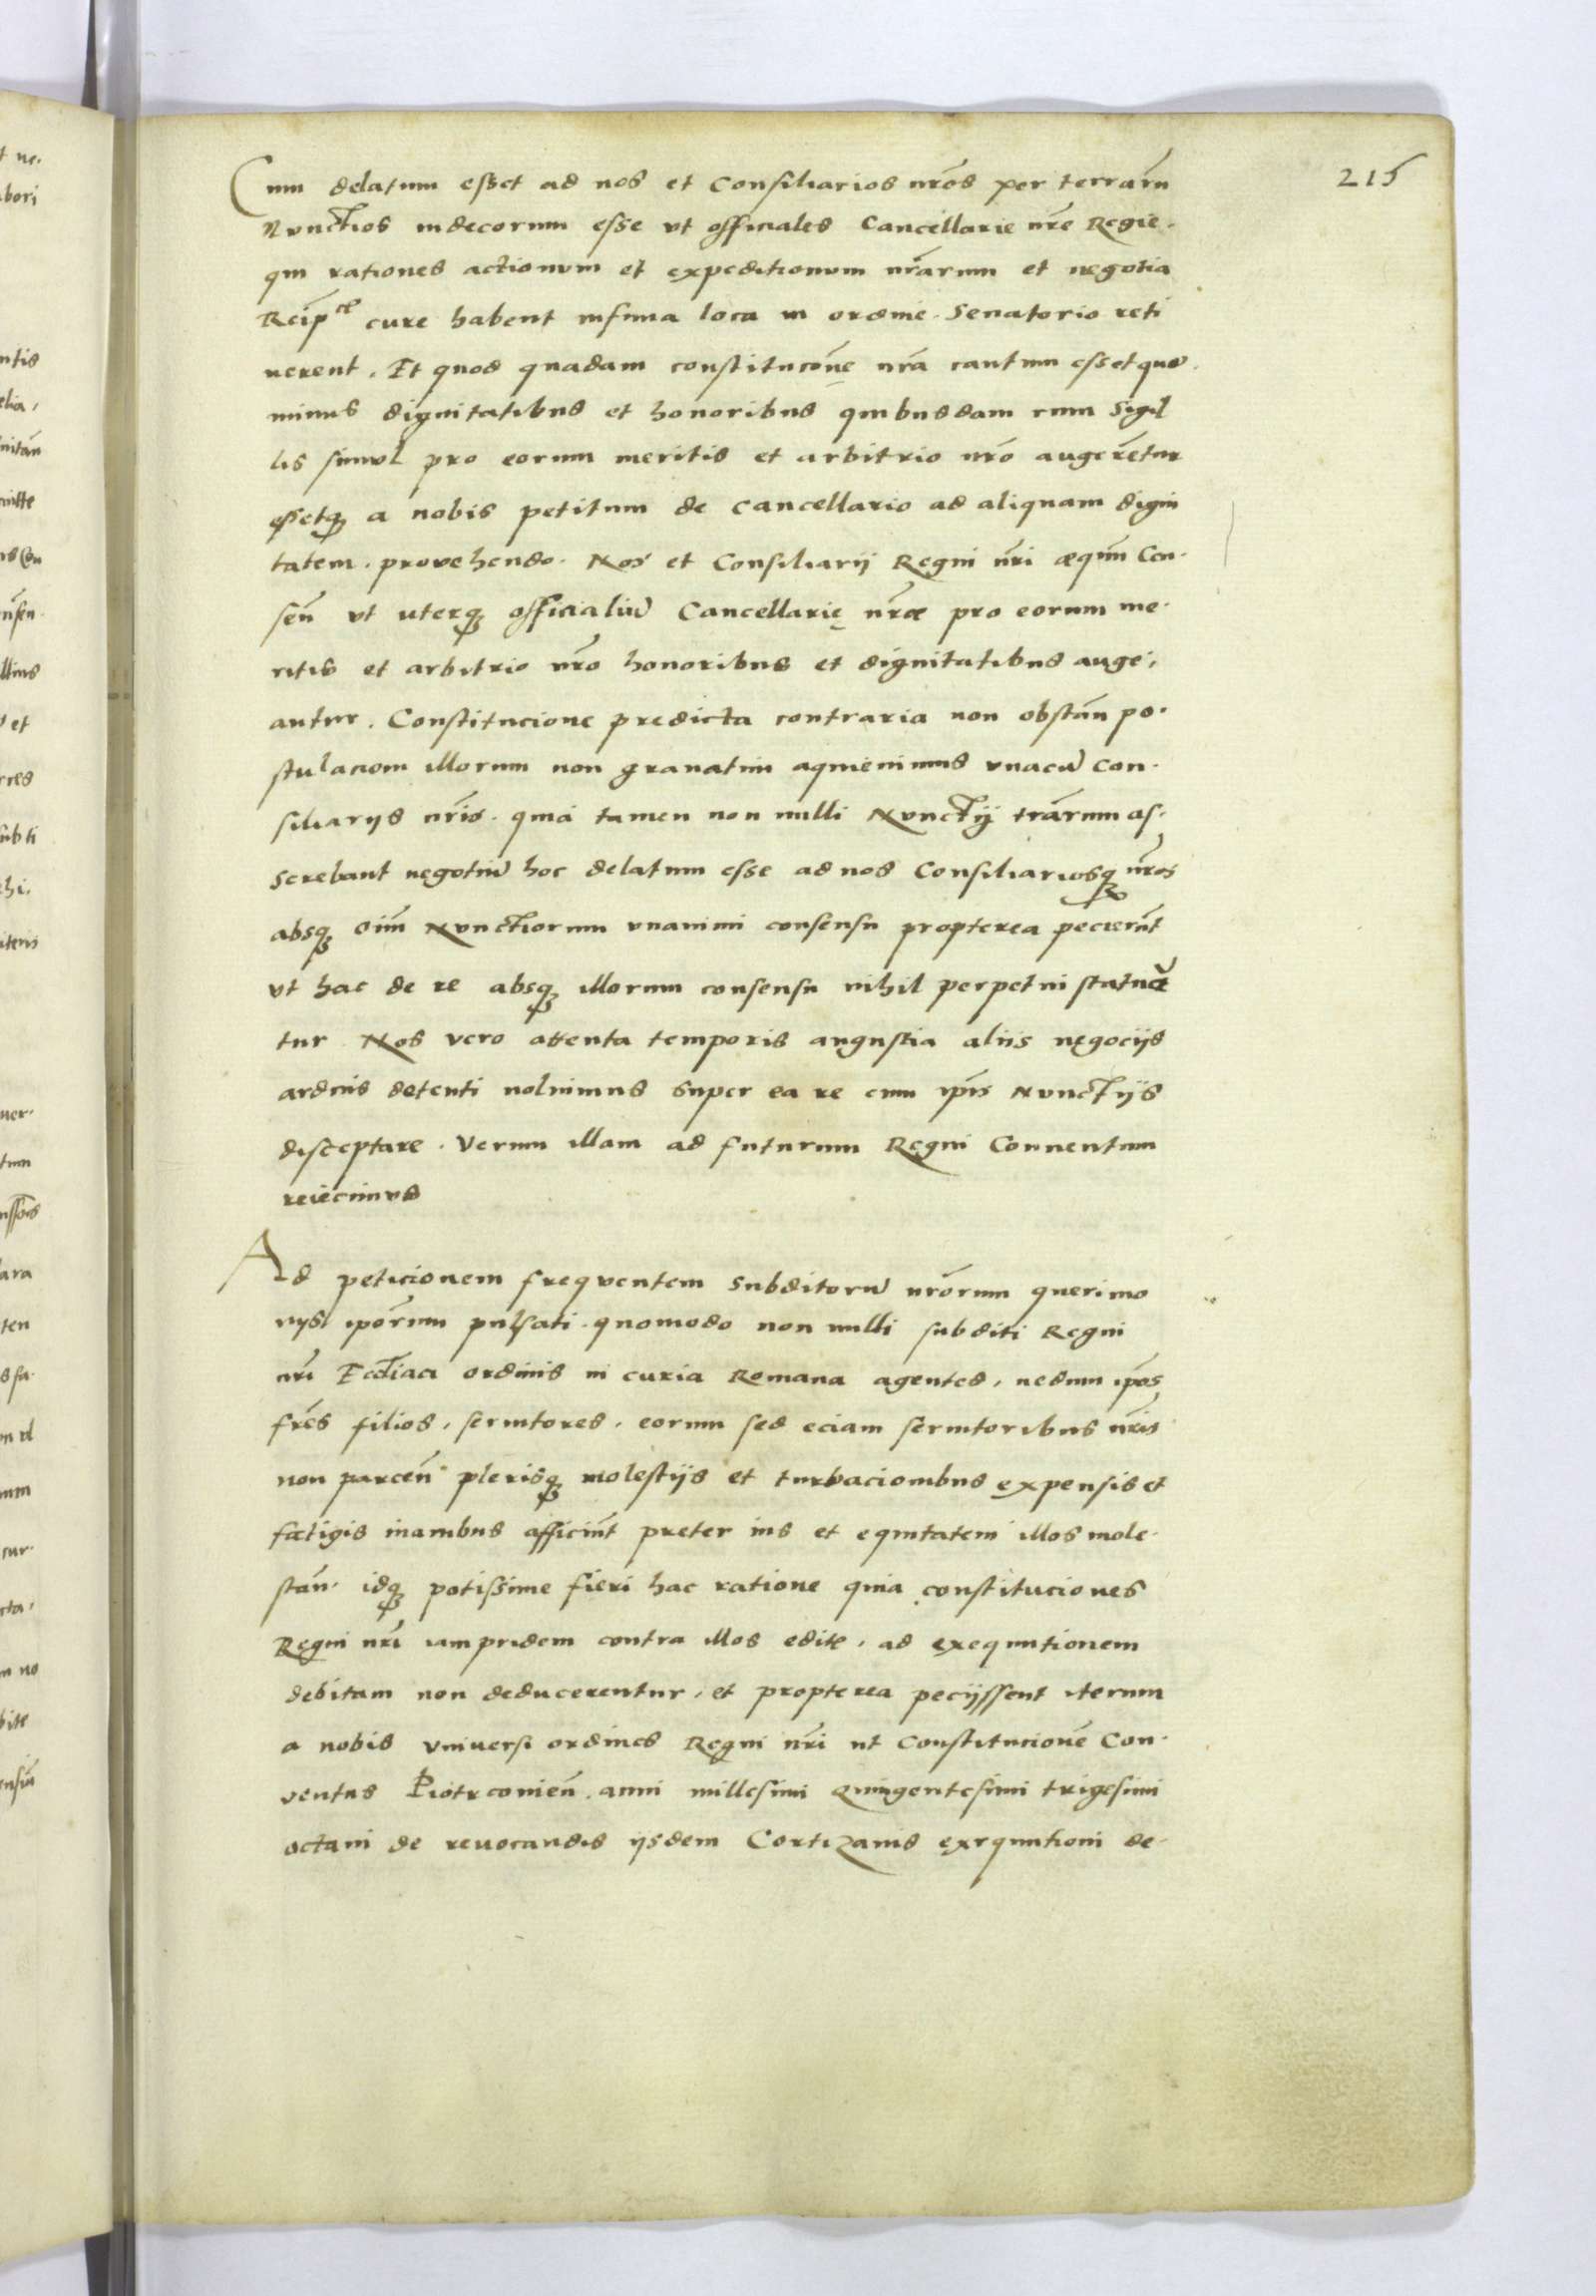 215
Cum delatum esset ad nos et Consiliarios nr̃os per terrarũ
Nunctios indecorum esse ut officiales Cancellarie nr̃e Regie.
qui rationes actionum et expeditionum nr̃arum et negotia
Reip̃ce cure habent infima loca in ordine Senatorio reti
nerent. Et quod quadam constitucõne nr̃a cautum esset quo
minus dignitatibus et honoribus quibusdam cum sigil
lis simul pro eorum meritis et arbitrio nr̃o augerẽtur
essetq̃ a nobis petitum de Cancellario ad aliquam digni
tatem provehendo. Nos et Consiliarii Regni nr̃i æqum̃ Cen-
sen̄ ut uterq̃ officialiũ Cancellarię nr̃æ pro eorum me-
ritis et arbitrio nr̃o honoribus et dignitatibus auge,
antur. Constitucione predicta contraria non obstan̄ po-
stulaciom illorum non gravatim aquievimus unacũ Con-
siliarijs nr̃is. quia tamen non nulli Nunctij tr̃arum as-
serebant negotiũ hoc delatum esse ad nos Consiliariosq̃ nr̃os
absq̃ oim̃ Nunctiorum unanimi consensu propterea pecierũt
ut hac de re absq̃ illorum consensu nihil perpetui statuæ
tur Nos vero attenta temporis angustia aliis negocijs
arduis detenti noluimus super ea re cum ip̃is Nunctijs
disceptare. Verum illam ad futurum Regni Conuentum
reiecimus
Ad peticionem frequentem subditorũ nr̃orum querimo
nijs ip̃orum pulsati. quomodo non nulli subditi Regni
nr̃i Ecctiaci ordinis in curia Romana agentes, nedum ip̃os
fr̃es filios, seruitores, eorum sed eciam seruitoribus nr̃is
non parcen̄ plerisq̃ molestijs et turbacionibus expensis et
fatigis inanibus afficiũt preter ius et equitatem illos mole-
stan̄. idq̃ potissime fieri hac ratione quia constituciones
Regni nr̃i iampridem contra illos edite, ad exequutionem
debitam non deducerentur, et propterea pecijssent iterum
a nobis universi ordines Regni nr̃i ut Constitucionẽ Con-
ventus Piotrconien̄. anni millesimi Quingentesimi trigesimi
octavi de revocandis ijsdem Cortizanis exequutioni de-